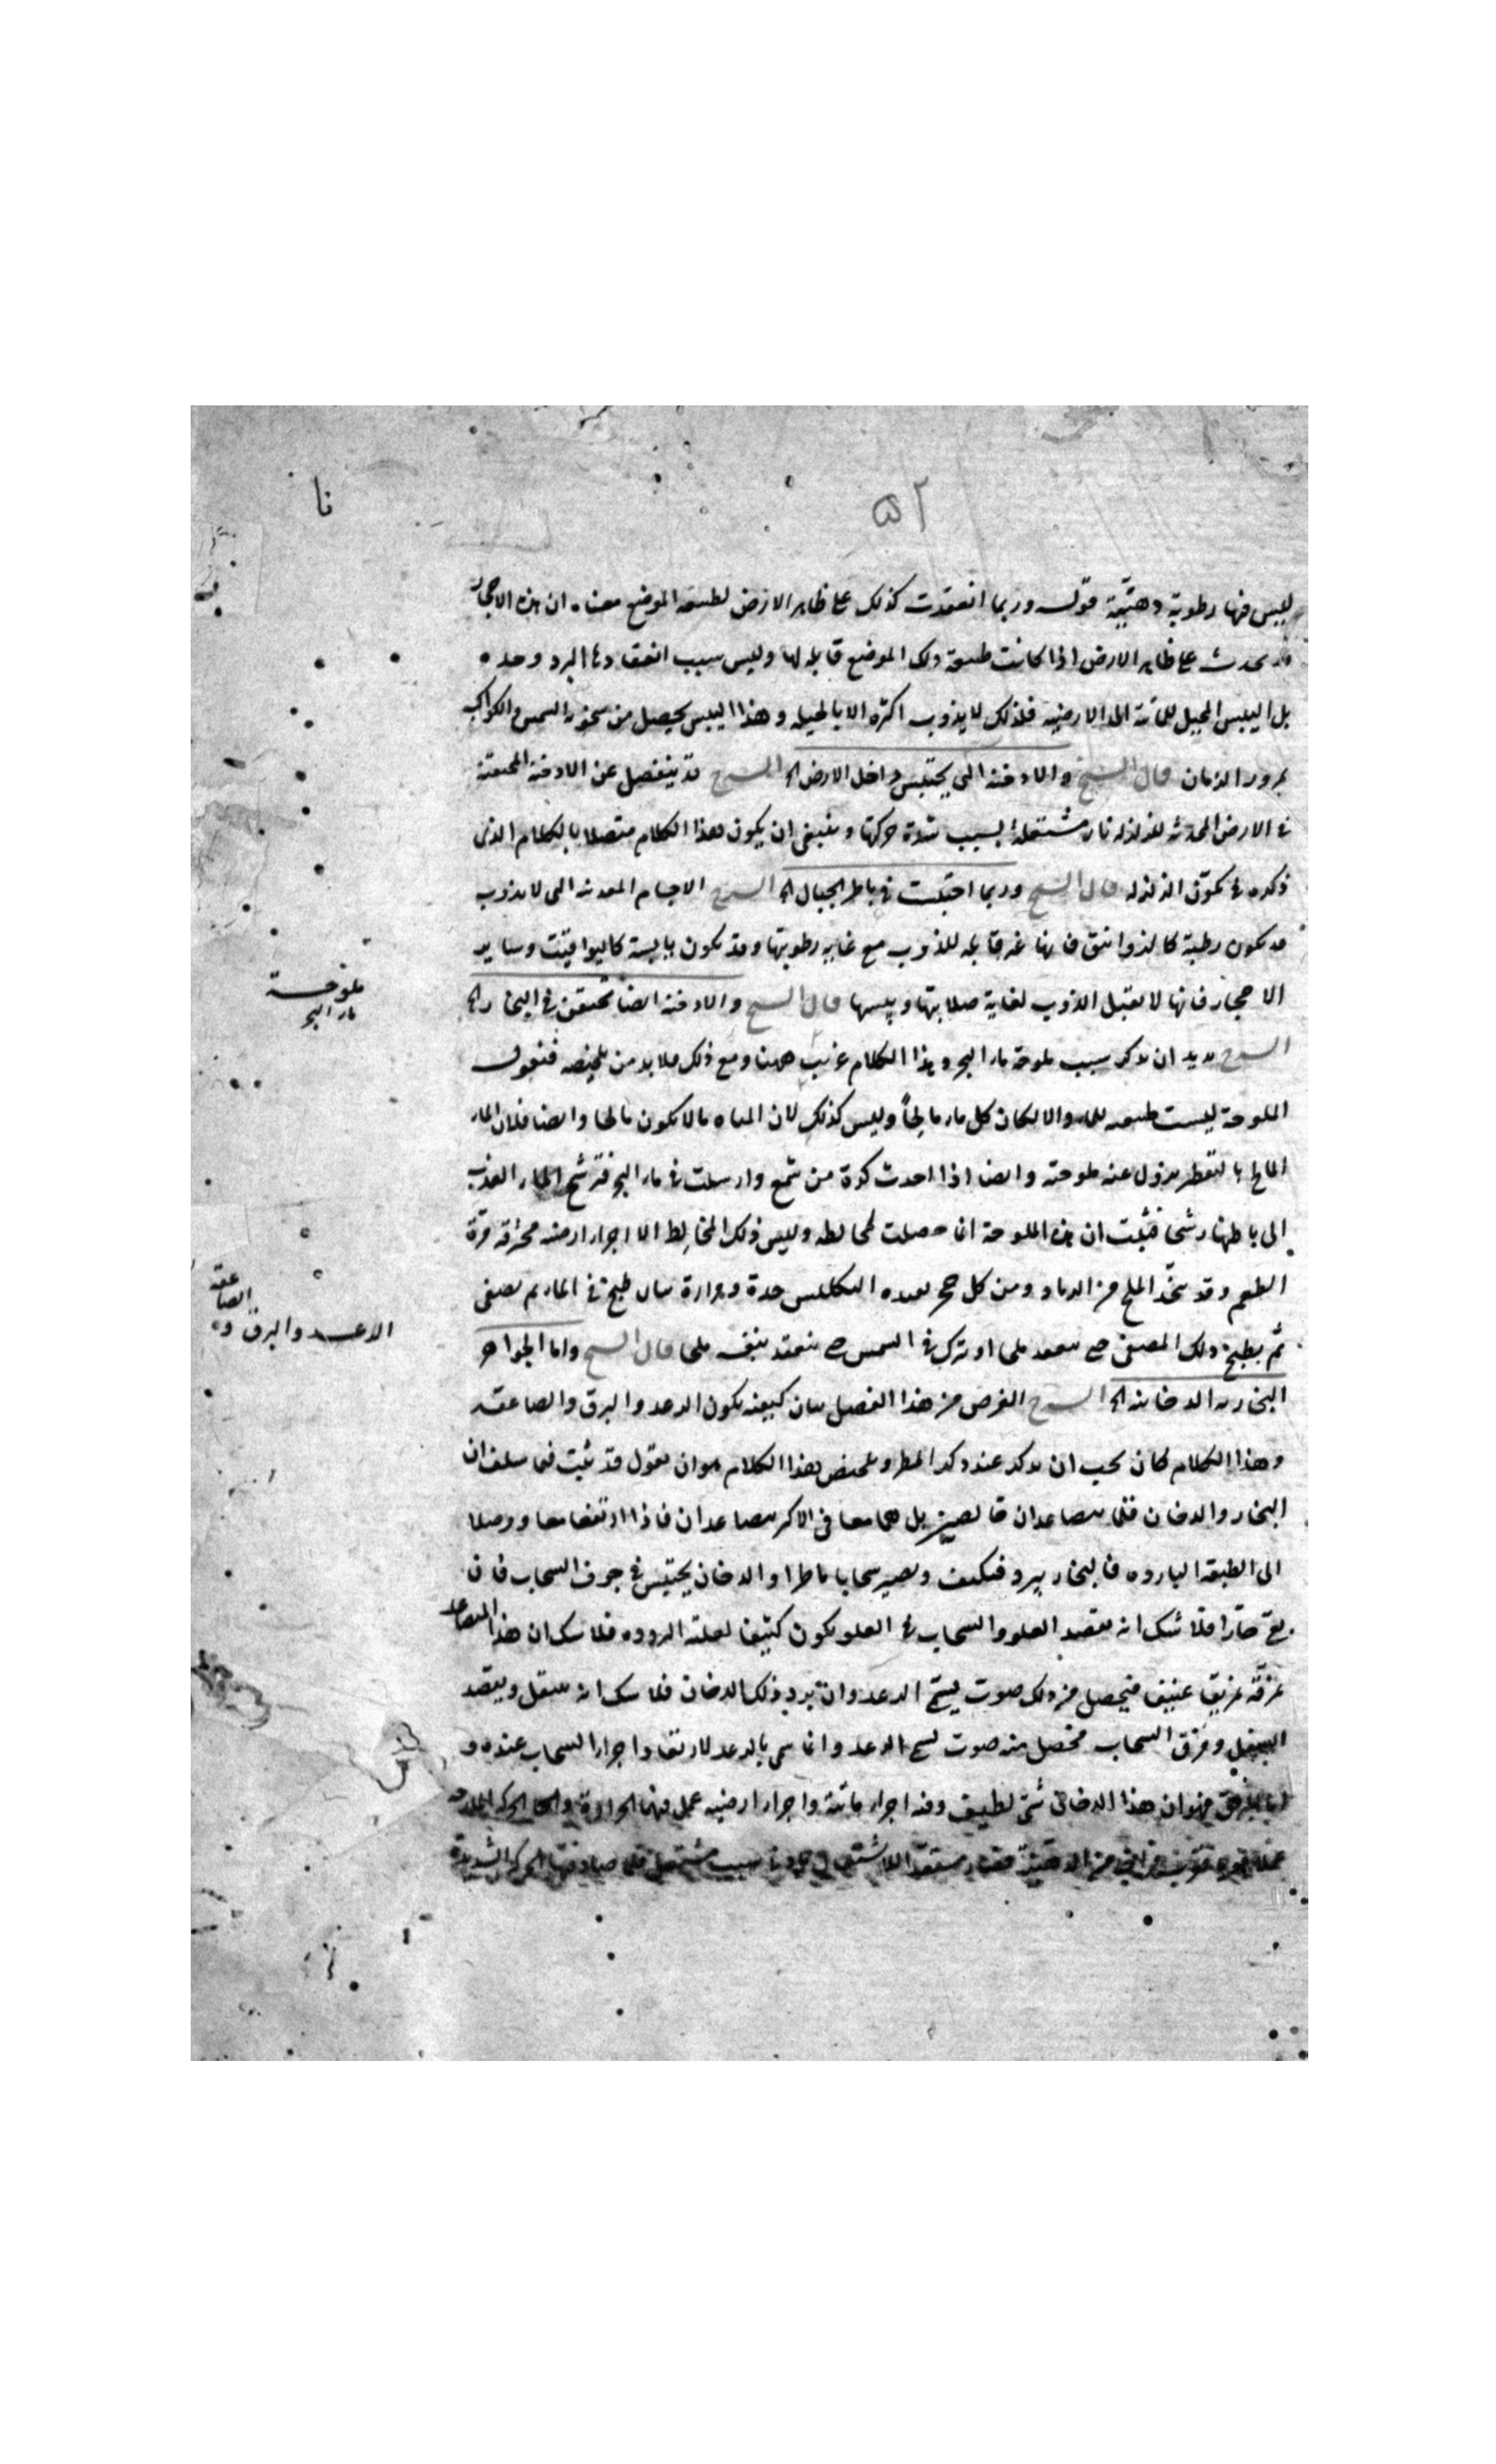 نا
٥٢
ليس فيها رطوبة دهنية قوله وربما انعقدت كذلك على ظاهر الارض لطبيعة الموضع معناه ان هذه الاحجار
قد تحدث على ظاهر الارض اذا كانت طبيعة ذلك الموضع قابلة لها وليس سبب انعقادها البرد وحده
بل اليبس المحيل للمائية الى الارضية فلذلك لا يذوب اكثره الا بالحيلة وهذا اليبس يحصل من سخونة الشمس والكواكب
بمرور الزمان قال الشيخ والادخنة التي يحتبس داخل الارض الخ الشرح قد ينفصل عن الادخنة المحتقنة
في الارض المحدثة للزلزلة نار مشتعلة بسبب شدة حركتها وينبغي ان يكون هذا الكلام متصلا بالكلام الذي
ذكره في تكون الزلزلة قال الشيخ وربما احتبست في باطن الجبال الخ الشرح الاجسام المعدنية التي لا يذوب
قد تكون رطبة كالزوابيق فانها غير قابلة للذوب مع غاية رطوبتها وقد تكون يابسة كاليواقيت وساير
الاحجار فانها لا تقبل الذوب لغاية صلابتها ويبسها قال الشيخ والادخنة ايضا تحتقن في البخار الخ
الشرح يريد ان يذكر سبب ملوحة ماء البحر وهذا الكلام غريب ههنا ومع ذلك فلا بد من تلخيصه فنقول
الملوحة ليست طبيعة للماء والا لكان كل ماء مالحاً وليس كذلك لان المياه ما لا يكون مالحا وايضا فلان الماء
المالح بالتقطير يزول عنه ملوحته وايضا اذا احدث كرة من شمع وارسلت في ماء البحر فترشح الماء العذب
الى باطنها رشحا فثبت ان هذه الملوحة انما حصلت لمخالطة وليس ذلك المخالط الا اجزاء ارضية محترقة مرة
الطعم وقد يتخذ الملح من الرماد ومن كل حجر يفيده التكليس حدة ومرارة بان طبخ في الماء ثم يصفى
ثم يطبخ ذلك المصفى حتى ينعقد ملحا او يترك في الشمس حتى ينعقد بنفسه ملحا قال الشيخ واما الجواهر
البخارية الدخانية الخ الشرح الغرض من هذا الفصل بيان كيفية تكون الرعد والبرق والصاعقة
وهذا الكلام كان يجب ان يذكر عند ذكر المطر وتلخيص هذا الكلام هو ان نقول قد ثبت فيما سلف ان
البخار والدخان قلما يتصاعدان خالصين بل هما معا في الاكثر يتصاعدان فاذا ارتفعا معا ووصلا
الى الطبقة الباردة فالبخار يبرد فيتكثف ويصير سحابا ماطرا والدخان يحتبس في جوف السحاب فان
بقي حارا فلا شك انه يقصد العلو والسحاب في العلو يكون كثيفا لعلة البرودة فلا شك ان هذا المتصاعد
يمزقه تمزيقا عنيفا فيحصل من ذلك صوت يسمى الرعد وان برد ذلك الدخان فلا شك انه يثقل ويقصد
السفل ومزق السحاب فحصل منه صوت يسمى الرعد وانما سمي بالرعد لارتعاد اجزاء السحاب عنده و
اما البرق فهو ان هذا الدخان شيء لطيف وفيه اجزاء مائية واجزاء ارضية عمل فيها الحرارة
ملوحة
ماء البحر
الرعد والبرق و
الصاعقة